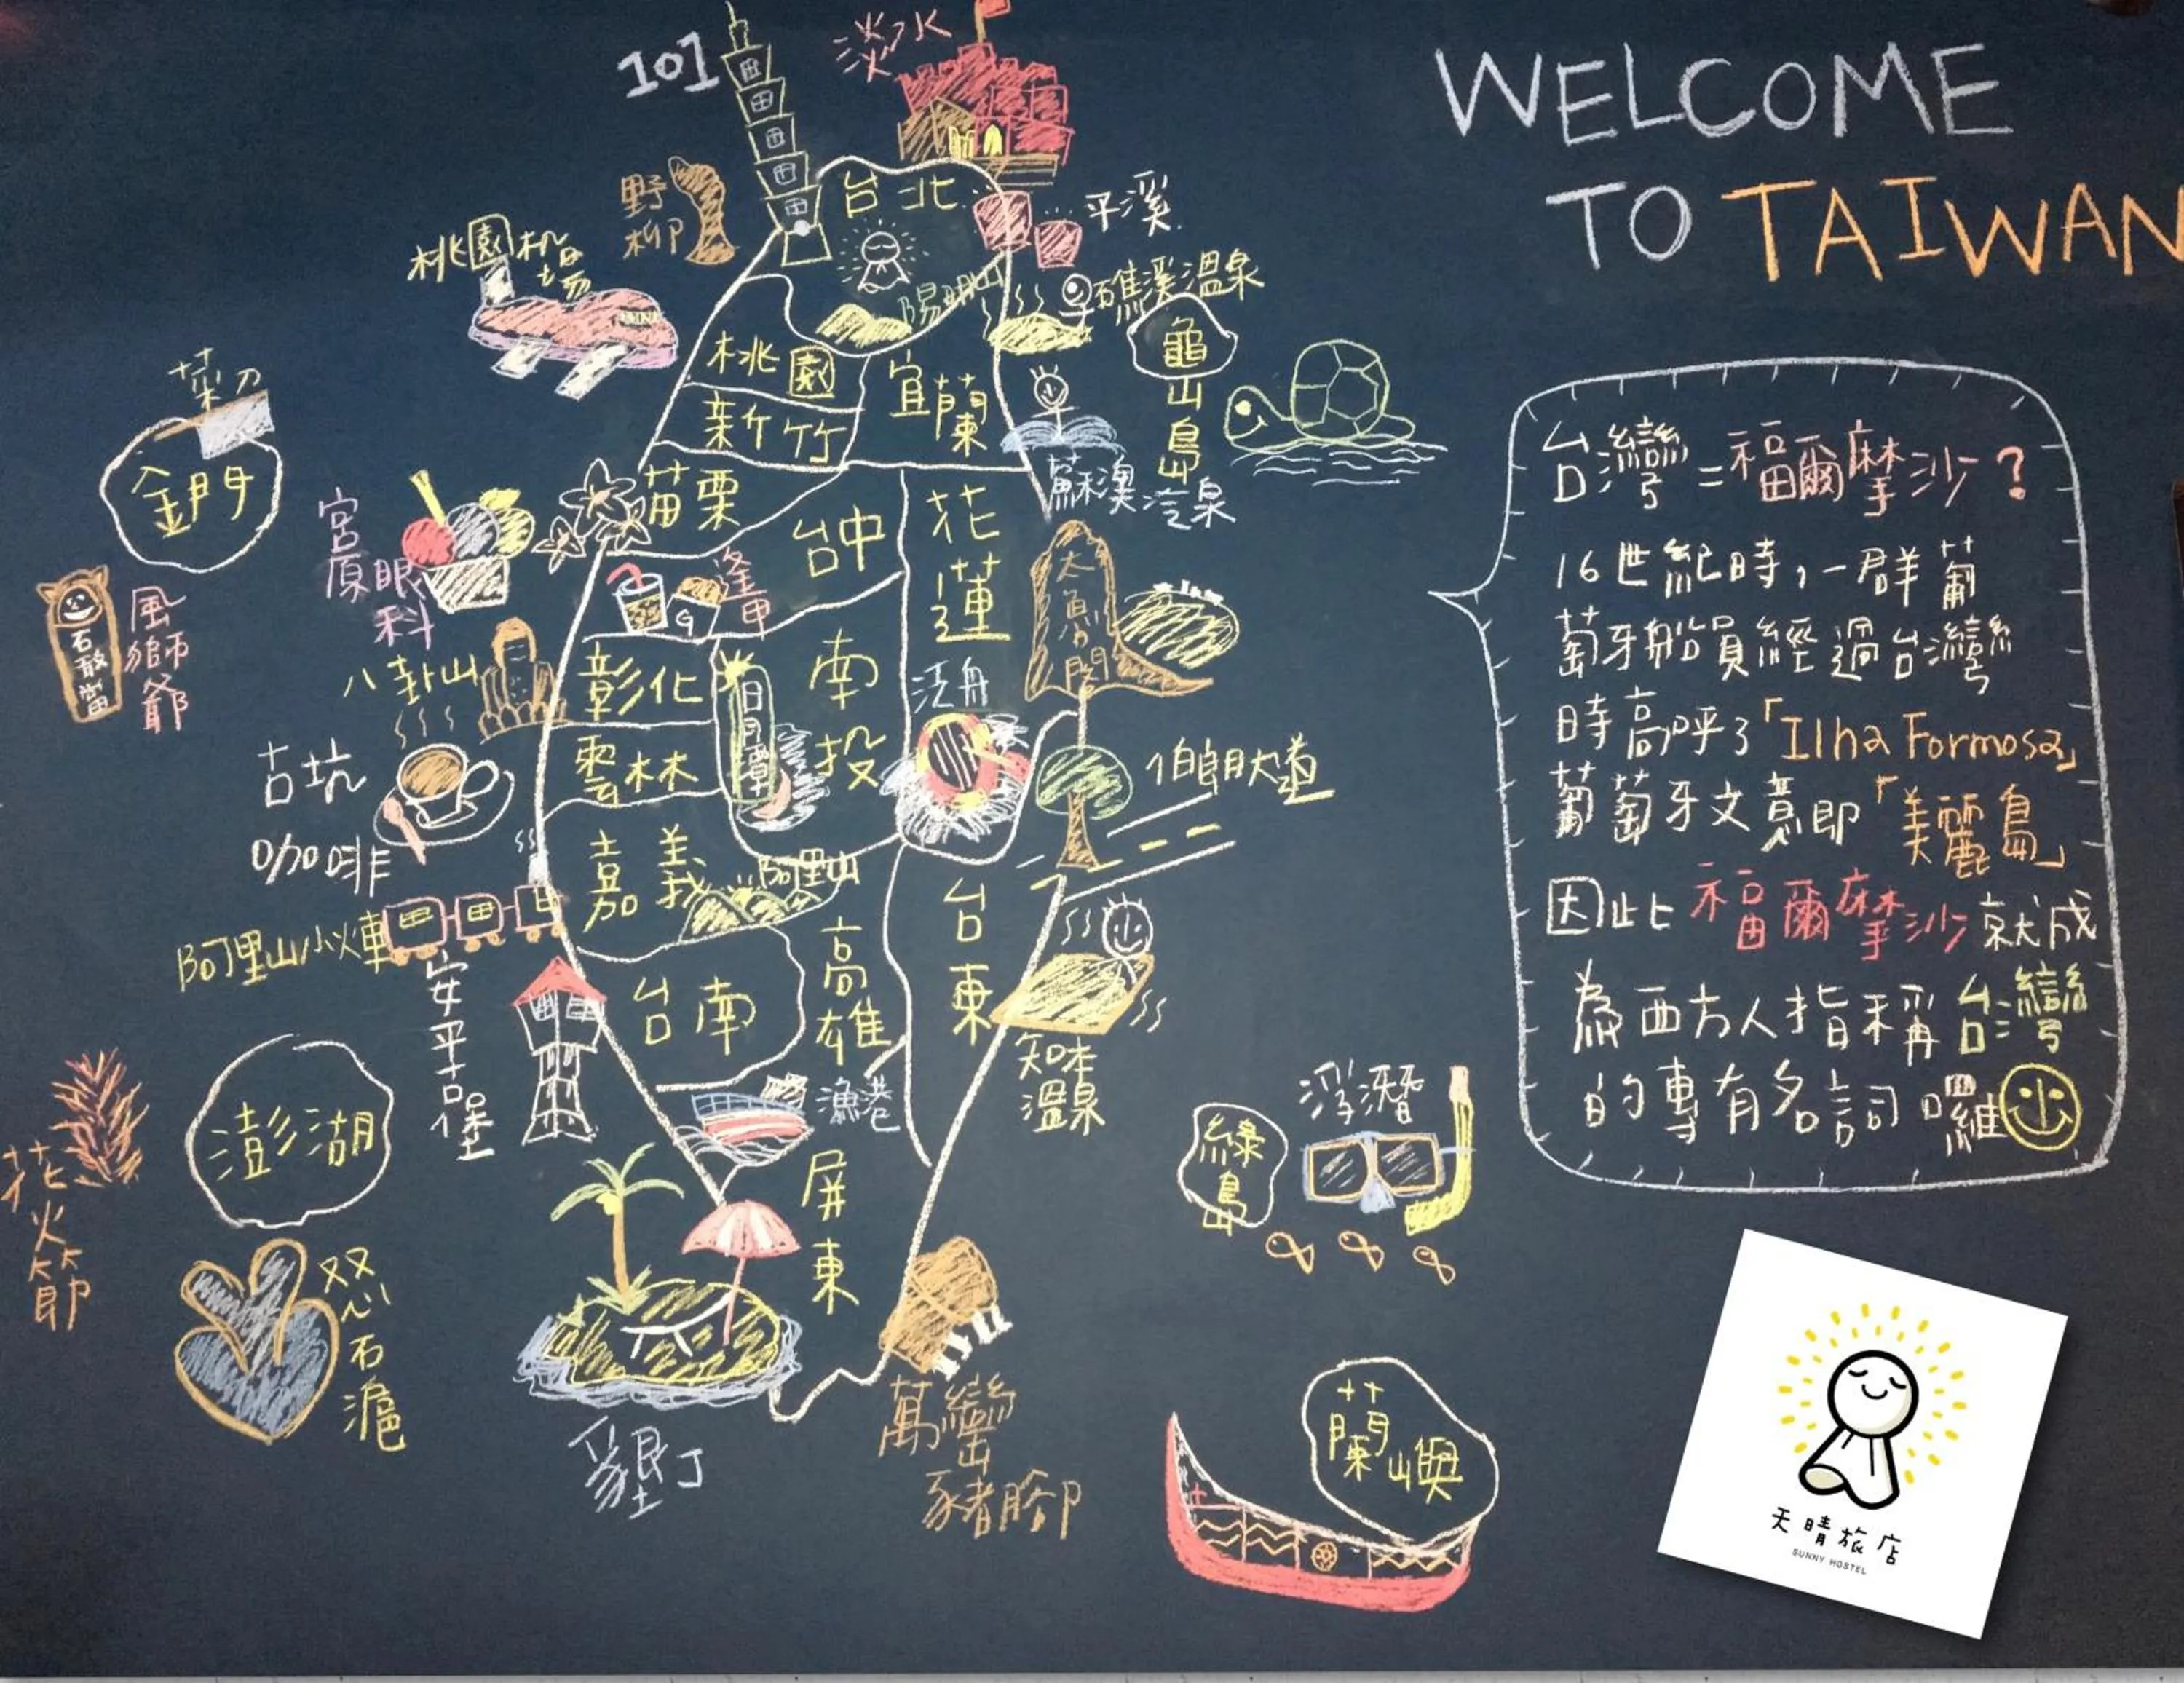 WELCOME
TO TAIWAN
101
淡水
野柳
台北
平溪
桃園机場
陽明山
礁溪溫泉
龜山島
桃園
宜蘭
新竹
蘇澳冷泉
菜刀
金門
苗栗
台中
花蓮
宮原眼科
逢甲
太魯閣
風獅爺
石敢當
八卦山
彰化
南投
日月潭
泛舟
古坑
咖啡
雲林
伯朗大道
嘉義
阿里山
阿里山小火車
台東
高雄
台南
安平古堡
知本溫泉
漁港
澎湖
花火節
双心石滬
屏東
墾丁
萬巒
豬腳
浮潛
綠島
蘭嶼
台灣=福爾摩沙?
16世紀時,一群葡
萄牙船員經過台灣
時高呼了「Ilha Formosa」
葡萄牙文意即「美麗島」
因此福爾摩沙就成
為西方人指稱台灣
的專有名詞囉
天晴旅店
SUNNY HOSTEL